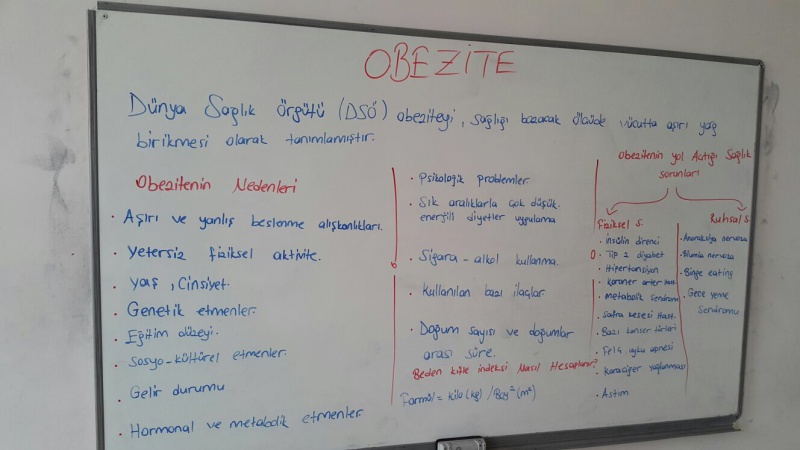 OBEZİTE
Dünya Sağlık Örgütü (DSÖ) obeziteyi, sağlığı bozacak ölçüde vücutta aşırı yağ
birikmesi olarak tanımlamıştır.
Obezitenin Nedenleri
• Aşırı ve yanlış beslenme alışkanlıkları.
• Yetersiz fiziksel aktivite.
• Yaş, Cinsiyet.
• Genetik etmenler.
• Eğitim düzeyi.
• Sosyo-kültürel etmenler.
• Gelir durumu
• Hormonal ve metabolik etmenler
• Psikolojik problemler.
• Sık aralıklarla çok düşük
enerjili diyetler uygulama
• Sigara-alkol kullanma.
• Kullanılan bazı ilaçlar
• Doğum sayısı ve doğumlar
arası süre.
Beden kitle indeksi Nasıl Hesaplanır?
Formül = kilo (kg) / Boy² (m²)
Obezitenin yol Açtığı Sağlık
sorunları
Fiziksel S.
• insülin direnci
• Tip 2 diyabet
• Hipertansiyon
• Koroner arter hast.
• Metabolik Sendrom
• Safra kesesi Hast.
• Bazı kanser türleri
• Felç, uyku apnesi
• Karaciğer yağlanması
• Astım
Ruhsal S.
• Anoreksiya nervoza
• Blumia nervoza
• Binge eating
• Gece yeme
Sendromu